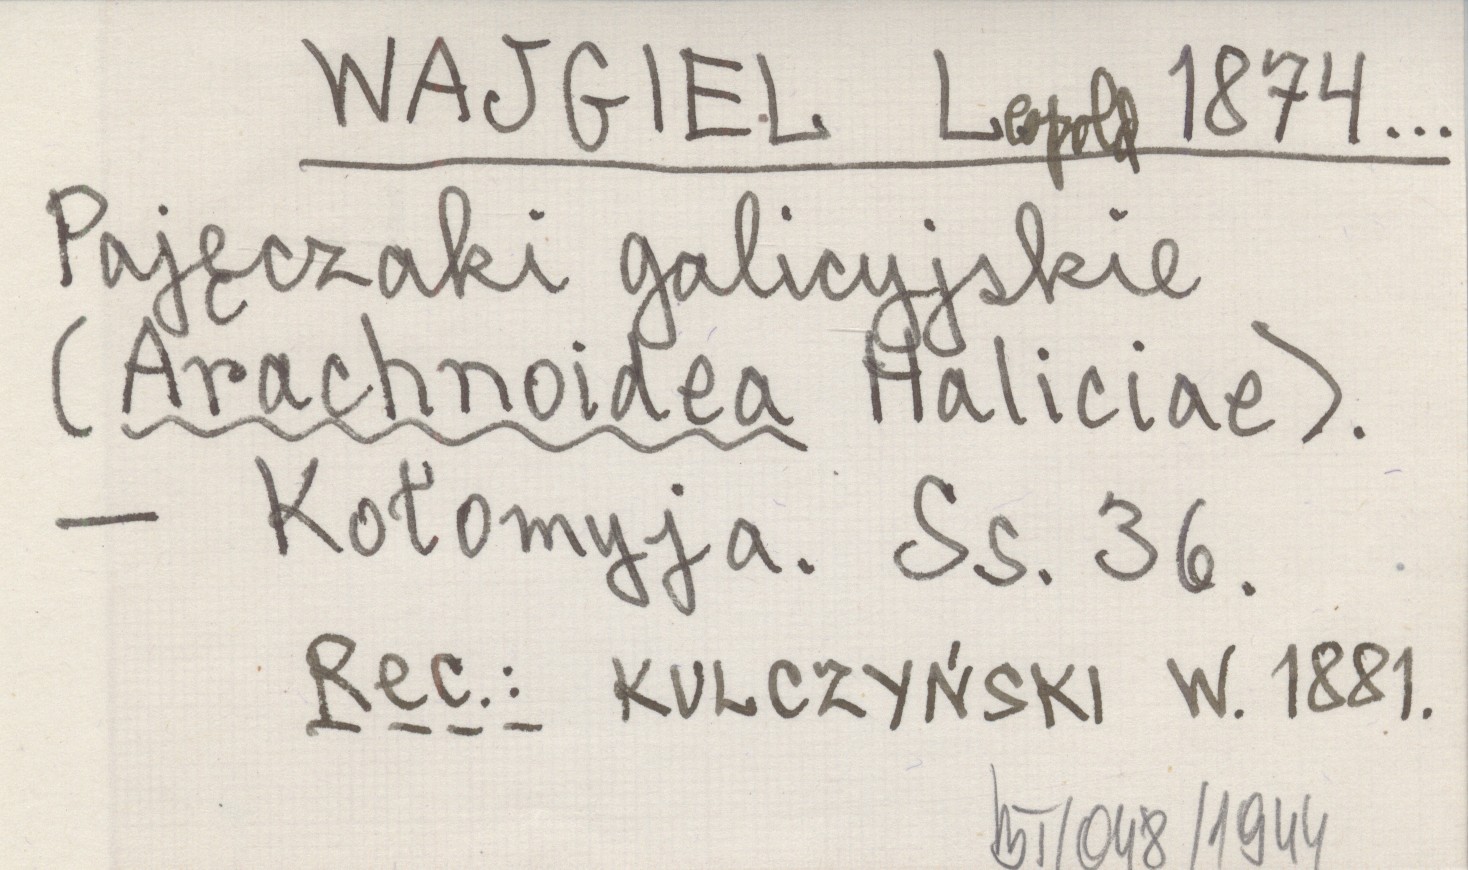 WAJGIEL Leopold 1874...
Pajęczaki galicyjskie
(Arachnoidea Haliciae).
— Kołomyja. Ss. 36.
Rec.: KULCZYŃSKI W. 1881.
/048/1944